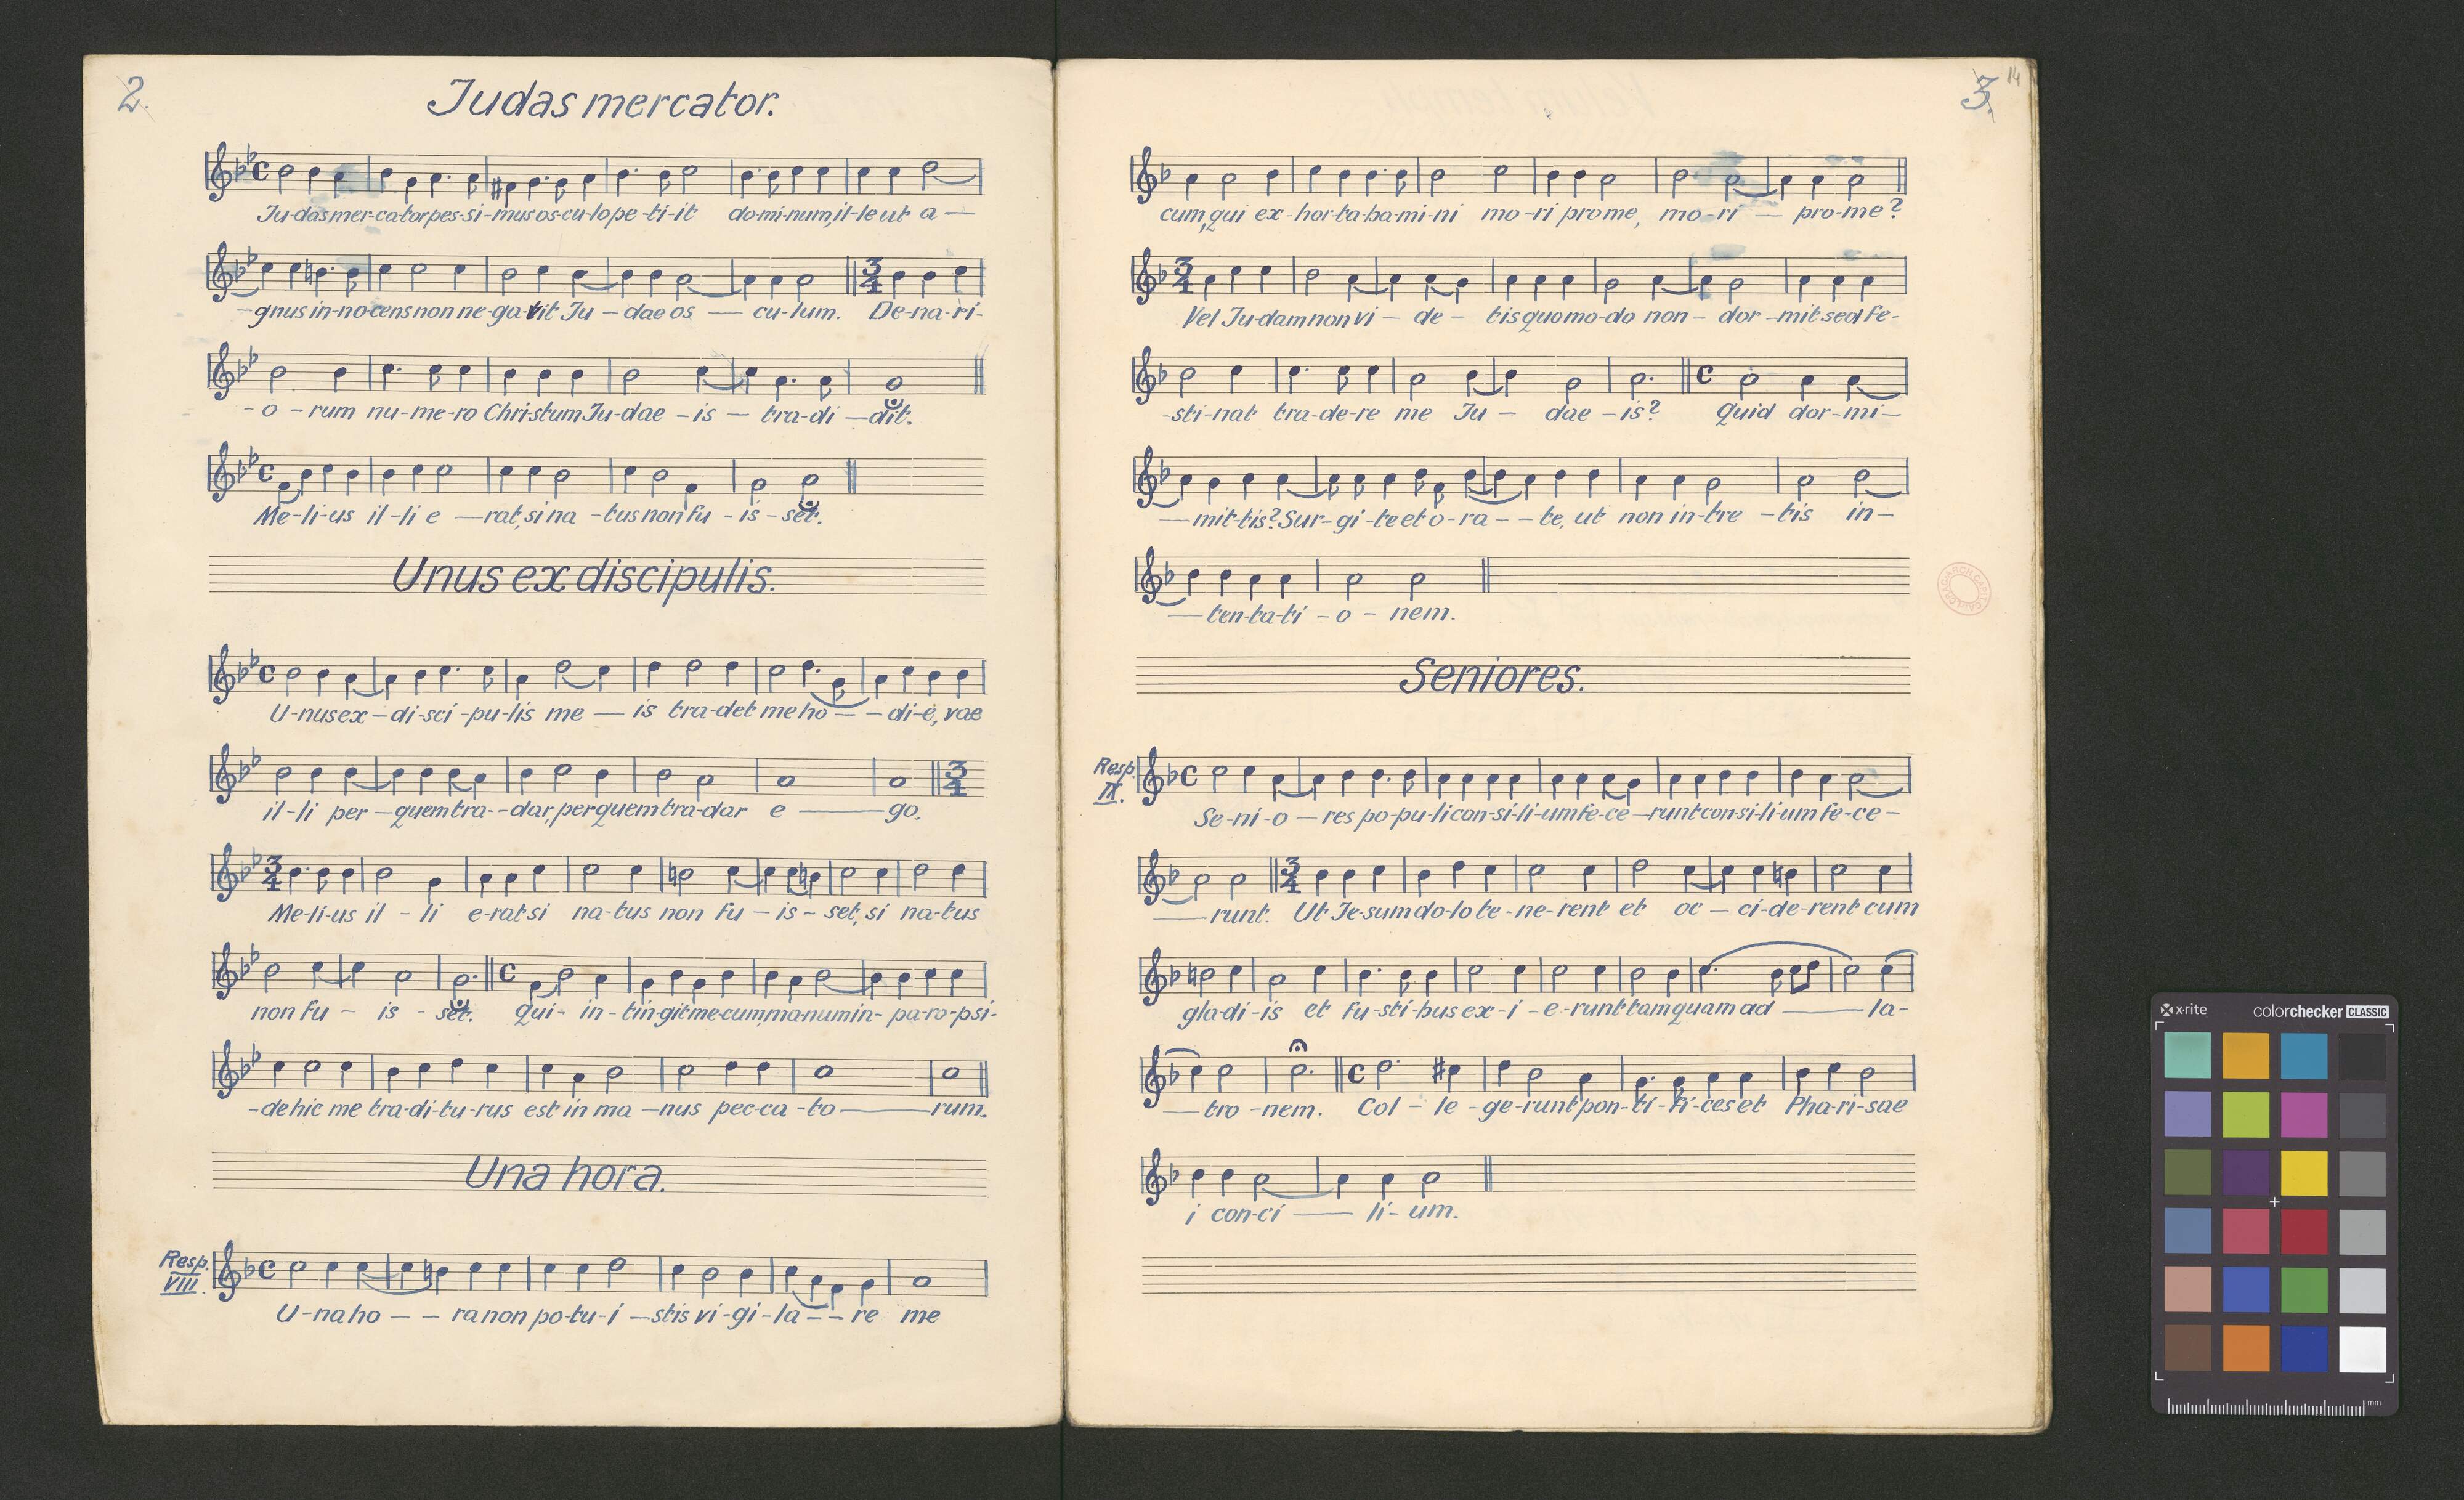 2.
Judas mercator.
Ju-das mer-ca-tor pes-si-mus os-cu-lo pe-ti-it do-mi-num, il-le ut a —
-gnus in-no-cens non ne-ga-vit Ju — dae os — cu-lum. De-na-ri-
-o-rum nu-me-ro Christum Ju-dae-is — tra-di — dit.
Me-li-us il-li e — rat, si na-tus non fu-is-set.
Unus ex discipulis.
U-nus ex-di-sci-pu-lis me — is tra-det me ho — — di-e, vae
il-li per — quem tra--dar, per quem tra-dar e — go.
3/4
Me-li-us il-li e-rat si na-tus non fu — is — set, si na-tus
non fu — is - set. qui- in-tin-git me-cum, ma-num in- pa-ro-psi-
-de hic me tra-di-tu-rus est in ma — nus pec-ca-to — rum.
Una hora.
Resp. VIII.
U-na ho — — ra non po-tu-i — stis vi-gi-la — — re me
3. 14
cum, qui ex-hor-ta-ba-mi-ni mo-ri pro me, mo-ri — pro-me?
3/4
Vel Ju-dam non vi — de — tis quo mo-do non — dor-mit sed fe-
-sti-nat tra-de-re me Ju — dae-is? Quid dor-mi —
— mit-tis? Sur-gi-te et o-ra — — te, ut non in-tre — tis in —
— ten-ta-ti-o-nem.
Seniores.
Resp. IX.
Se-ni-o — res po-pu-li con-si-li-um fe-ce — runt con-si-li-um fe-ce —
— runt. Ut Je-sum do-lo te-ne-rent et oc — ci-de-rent cum
gla-di-is et fu-sti-bus ex-i-e-runt tam quam ad — la-
— tro-nem. Col-le-ge-runt pon-ti-fi-ces et Pha-ri-sae
i con-ci — li-um.
x-rite colorchecker CLASSIC
mm